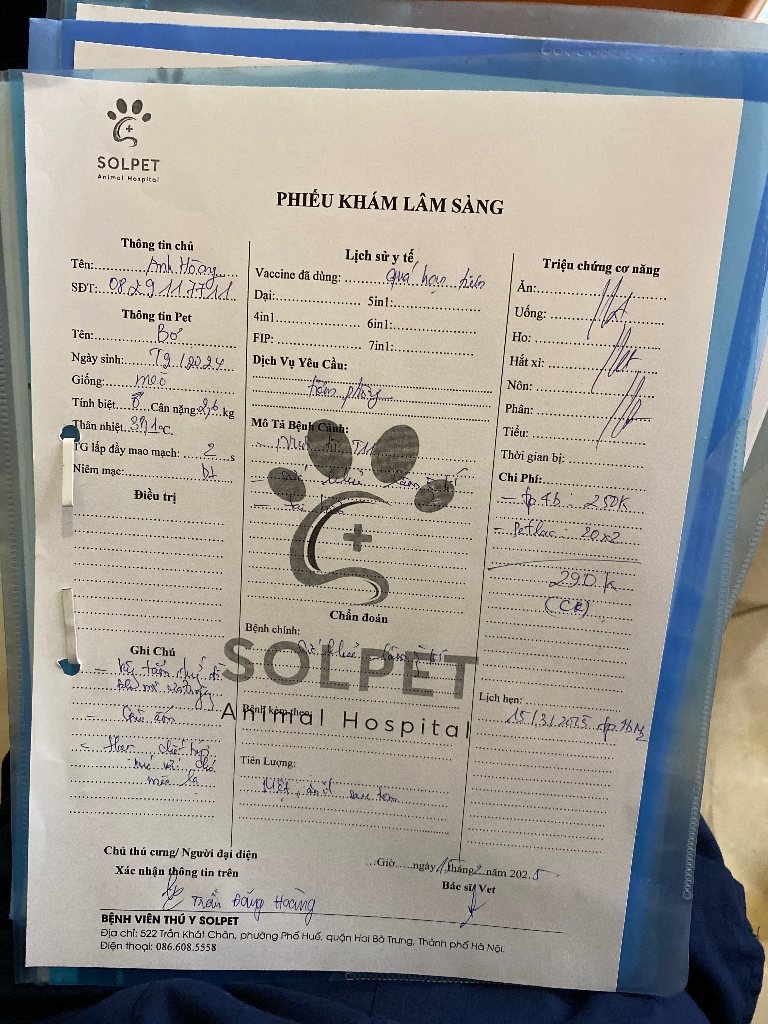 SOLPET
Animal Hospital
PHIẾU KHÁM LÂM SÀNG
Thông tin chủ
Tên: Anh Hoàng
SĐT: 0829117711
Thông tin Pet
Tên: Bơ
Ngày sinh: T9/2024
Giống: mèo
Tính biệt ♂ Cân nặng 2,6 kg
Thân nhiệt 39,1 °C.
TG lấp đầy mao mạch: 2 s
Niêm mạc: bt
Điều trị
Ghi Chú
Lịch sử y tế
Vaccine đã dùng: quá hạn tiêm
Dại: 5in1:
4in1 6in1:
FIP: 7in1:
Dịch Vụ Yêu Cầu:
tiêm phòng
Mô Tả Bệnh Cảnh:
- Nuôi từ T11
SOLPET
Animal Hospital
Chẩn đoán
Bệnh chính:
Bệnh kèm theo:
Tiên Lượng:
Mệt,
Triệu chứng cơ năng
Ăn:
Uống:
Ho:
Hắt xì:
Nôn:
Phân:
Tiểu:
Thời gian bị:
Chi Phí:
- tp 4b 250K
- Petlac: 20x2
290K
(CK)
Lịch hẹn:
15/3/2025 tp 4b M2
Chủ thú cưng/ Người đại diện
Xác nhận thông tin trên
Trần Đăng Hoàng
Giờ ngày 15 tháng 2 năm 2025
Bác sĩ/ Vet
BỆNH VIỆN THÚ Y SOLPET
Địa chỉ: 522 Trần Khát Chân, phường Phố Huế, quận Hai Bà Trưng, Thành phố Hà Nội.
Điện thoại: 086.608.5558